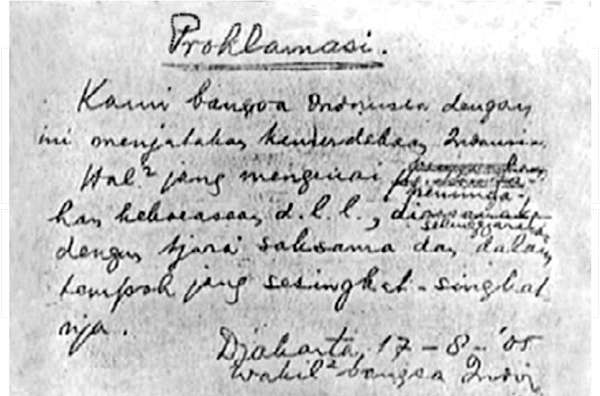 Proklamasi.
Kami bangsa Indonesia dengan
ini menjatakan kemerdekaan Indonesia.
Hal² jang mengenai
peminda-
han kekoeasaan d.l.l.,
diselenggarakan
dengan tjara saksama dan dalam
tempoh jang sesingkat-singkat
nja.
Djakarta, 17 - 8 - '05
Wakil² bangsa Indonesia